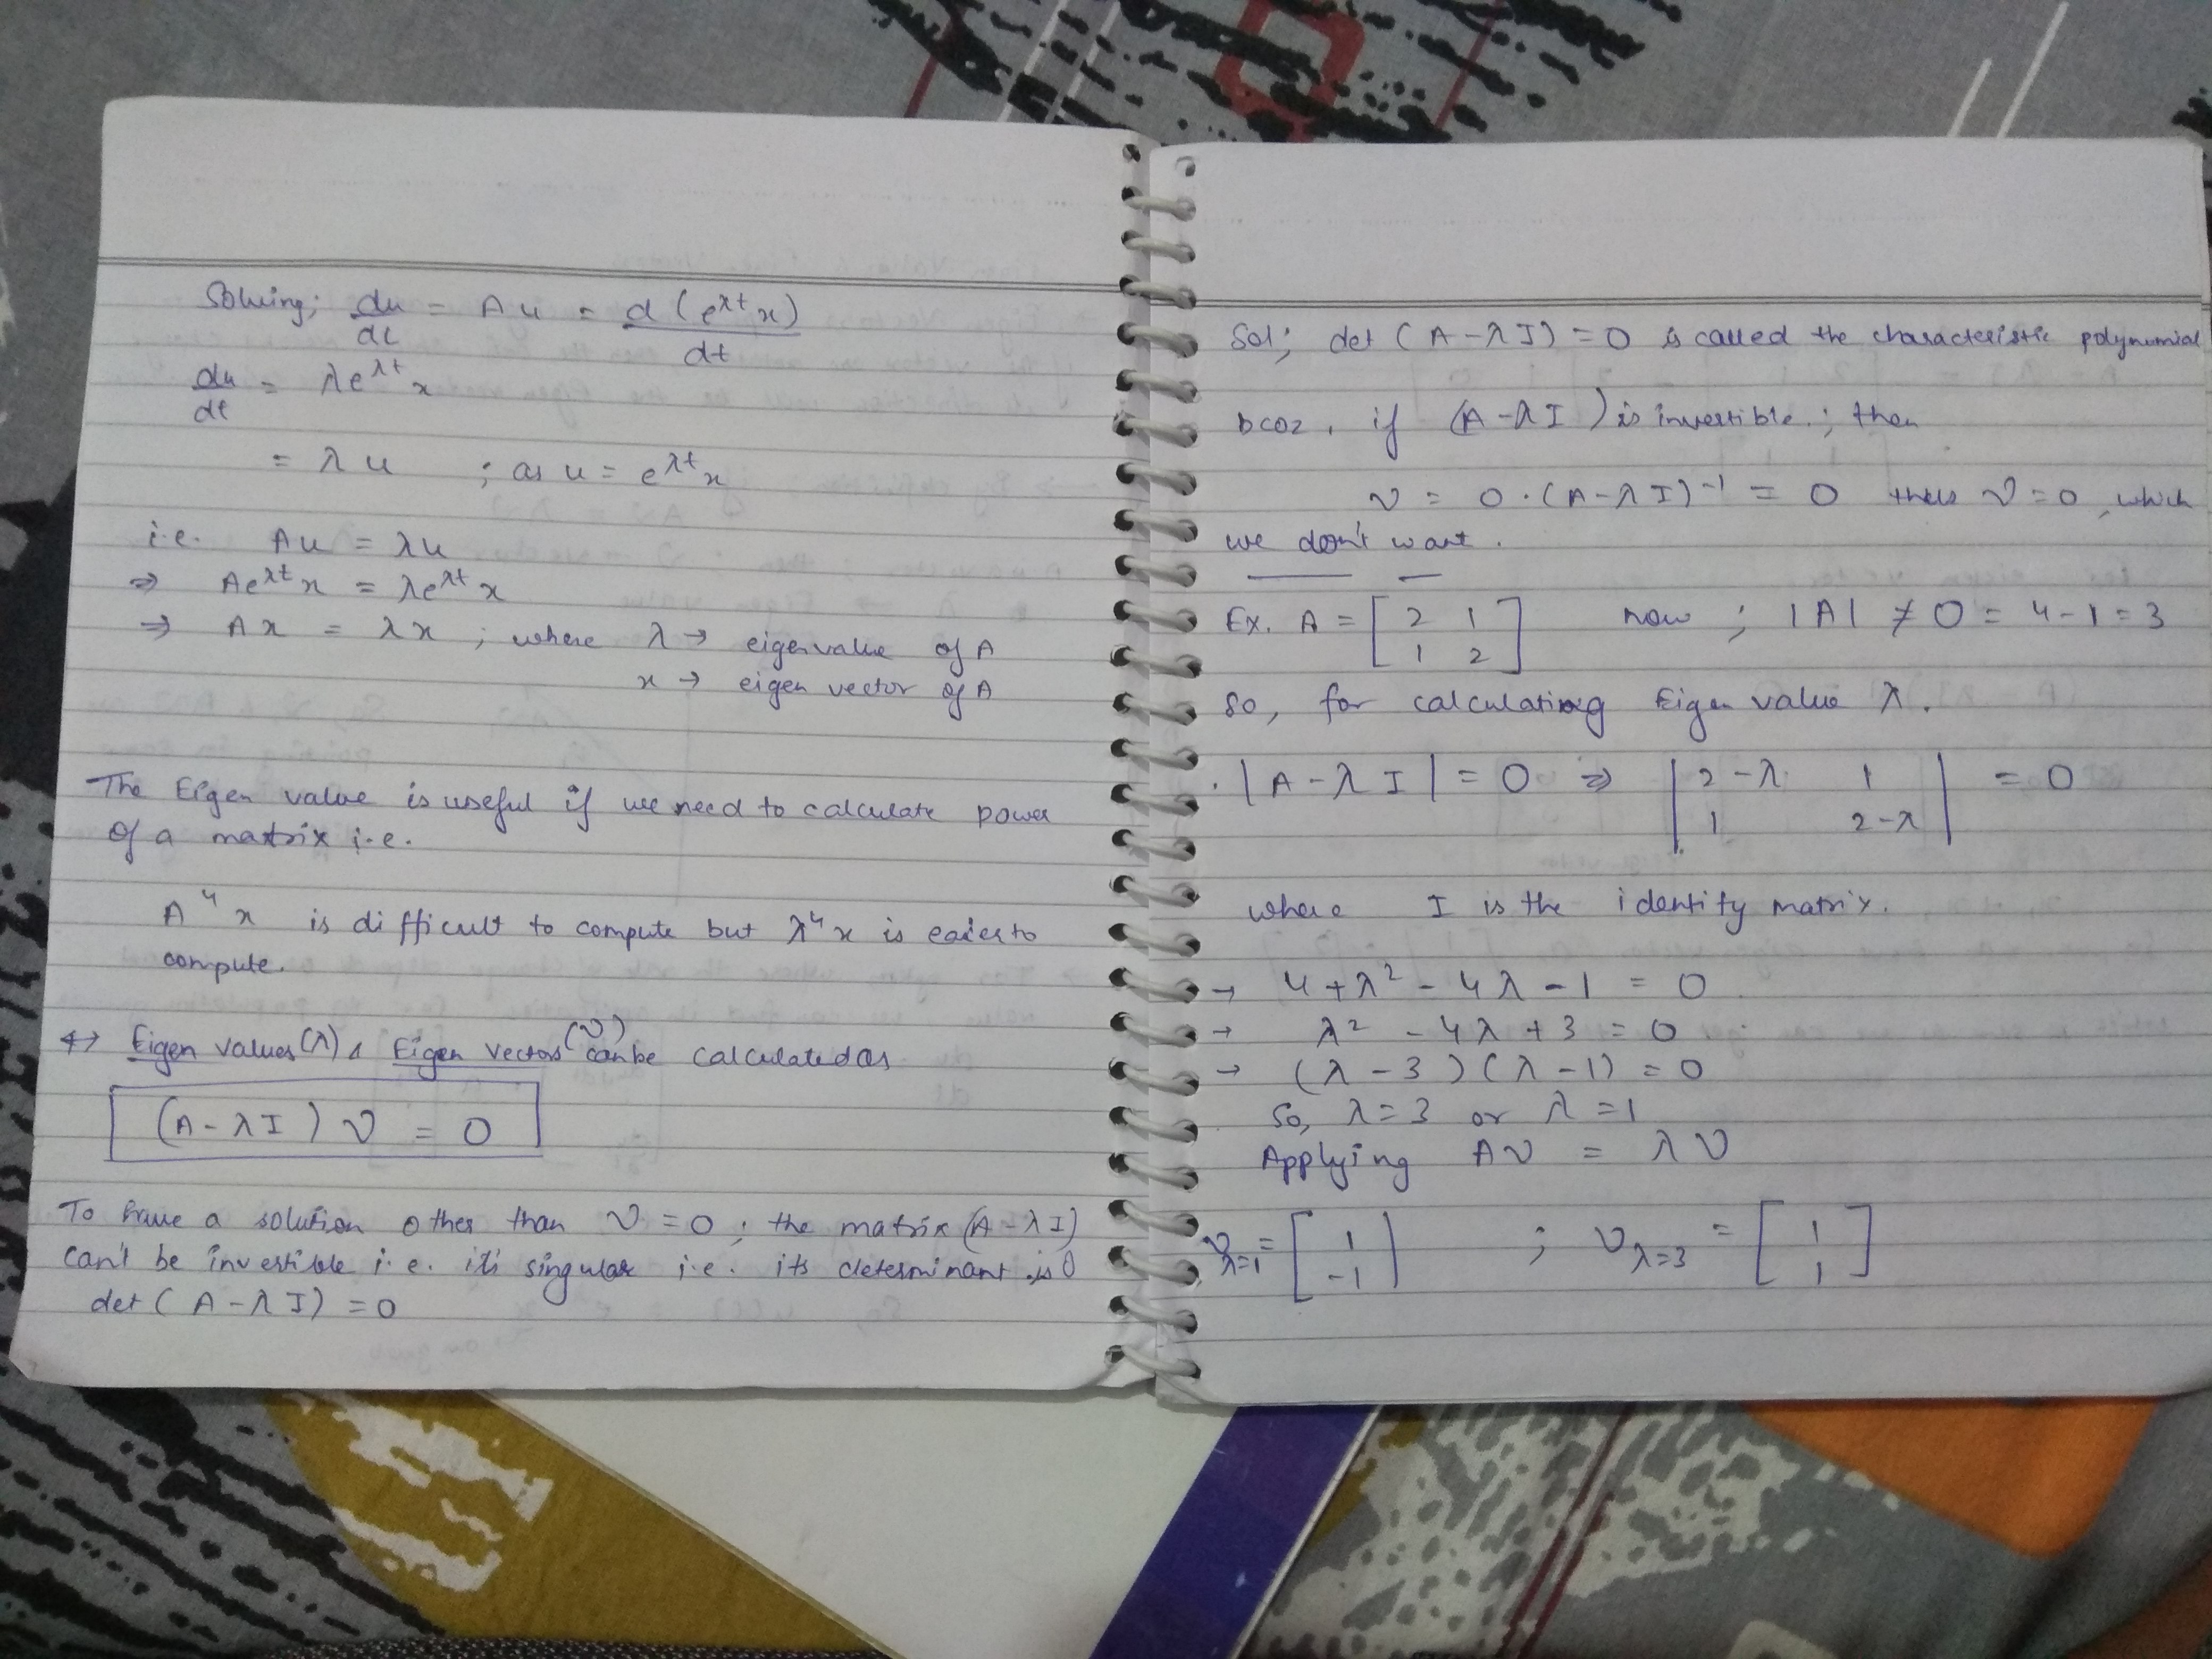 Solving; du/dt = Au = d(e^λt x)/dt
du/dt = λe^λt x
= λu ; as u = e^λt x
i.e. Au = λu
⇒ Ae^λt x = λe^λt x
⇒ Ax = λx ; where λ → eigenvalue of A
x → eigen vector of A
The Eigen value is useful if we need to calculate power
of a matrix i.e.
A⁴x is difficult to compute but λ⁴x is easier to
compute.
Eigen values (λ) & Eigen vectors (v) can be calculated as
(A - λI) v = 0
To have a solution other than v = 0 ; the matrix (A - λI)
can't be invertible i.e. it's singular i.e. its determinant is 0
det (A - λI) = 0
Sol; det (A - λI) = 0 is called the characteristic polynomial
bcoz, if (A - λI) is invertible ; then
v = 0 · (A - λI)⁻¹ = 0 thus v = 0, which
we don't want.
Ex. A = [2 1
1 2] now ; |A| ≠ 0 = 4 - 1 = 3
So, for calculating Eigen value λ.
. |A - λI| = 0 ⇒ |2-λ 1
1 2-λ| = 0
where I is the identity matrix.
→ 4 + λ² - 4λ - 1 = 0
→ λ² - 4λ + 3 = 0
→ (λ - 3)(λ - 1) = 0
So, λ = 3 or λ = 1
Applying Av = λv
v λ=1 = [1
-1] ; v λ=3 = [1
1]